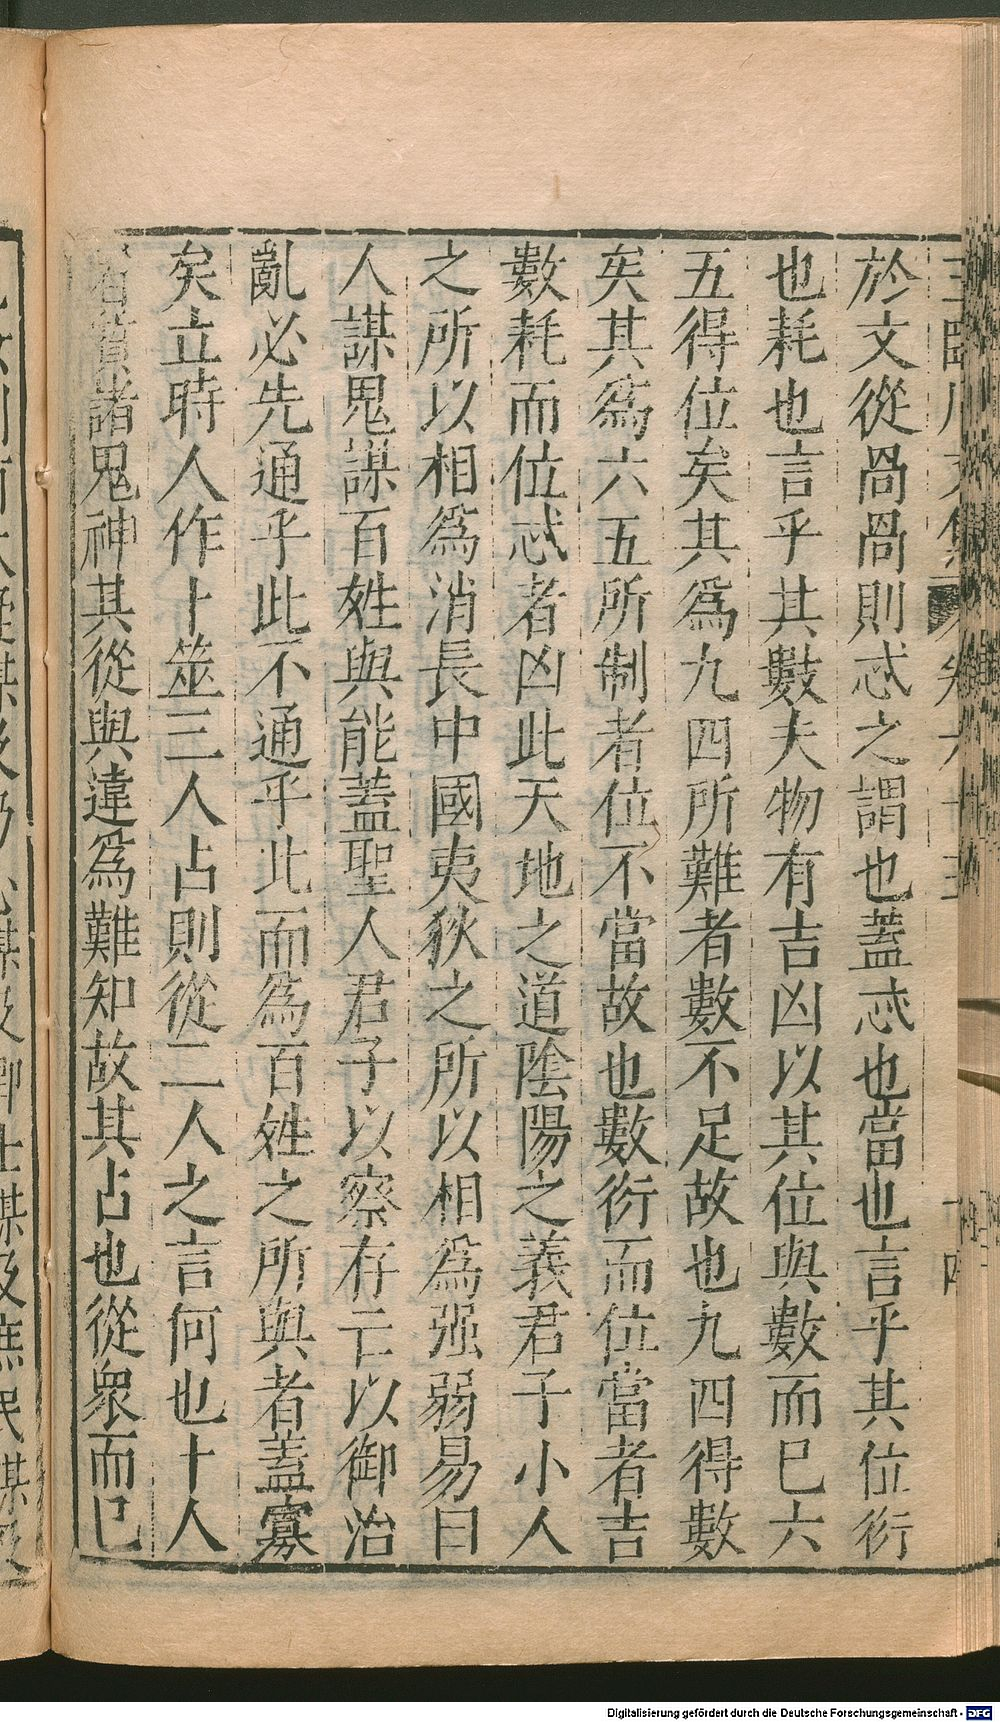 於文從咼咼則忒之謂也蓋忒也當也言乎其位衍
也耗也言乎其數夫物有吉凶以其位與數而巳六
五得位矣其爲九四所難者數不足故也九四得數
矣其爲六五所制者位不當故也數衍而位當者吉
數耗而位忒者凶此天地之道陰陽之義君子小人
之所以相爲消長中國夷狄之所以相爲强弱易曰
人謀鬼謀百姓與能蓋聖人君子以察存亡以御治
亂必先通乎此不通乎此而爲百姓之所與者蓋寡
矣立時人作卜筮三人占則從二人之言何也十人
者質諸鬼神其從與違爲難知故其占也從衆而巳
Digitalisierung gefördert durch die Deutsche Forschungsgemeinschaft - DFG